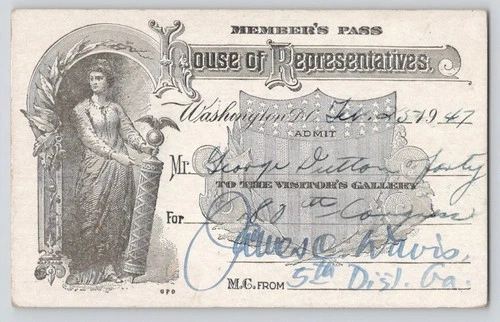 MEMBER'S PASS
House of Representatives.
Washington D.C. Feb. 25 1947
ADMIT
Mr. George Dutton & party
TO THE VISITOR'S GALLERY
For 80th Congress
James C Davis,
M.C. FROM 5th Dist. Ga.
GPO